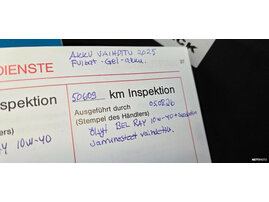 AKKU VAIHDETTU 2025
Fulbat -Gel-akku.
CK
DIENSTE
27
spektion
50609 km Inspektion
Ausgeführt durch
(Stempel des Händlers)
05.08.26
Öljyt BEL RAY 10W-40 +
RAY 10W-40
vaihdettu.
NETTIMOTO